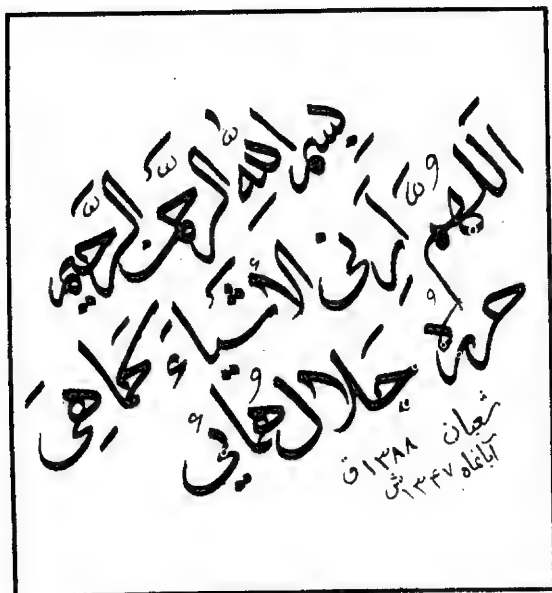 بسم الله الرحمن الرحیم
اللهم أرنی الأشیاء کما هی
حرره جلال همائی
شعبان ۱۳۸۸ ق
آبانماه ۱۳۴۷ ش